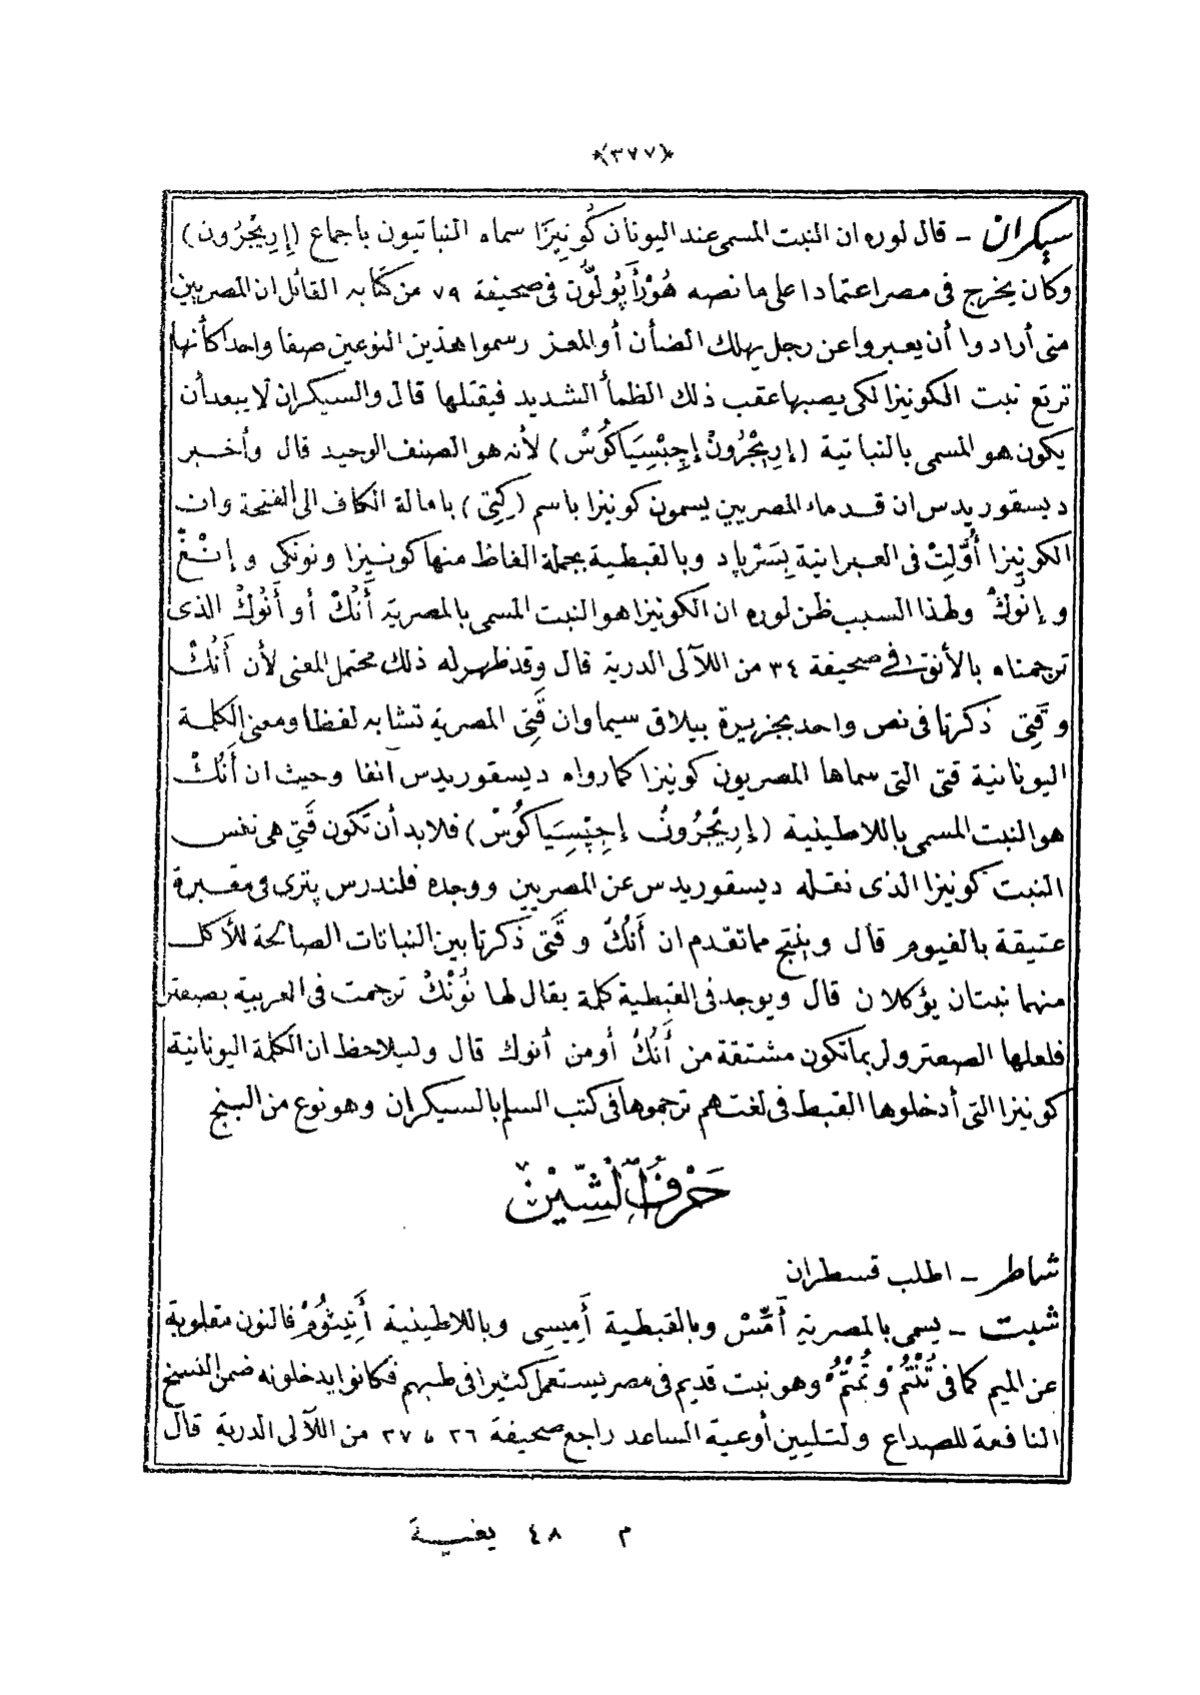 ﴿٣٧٧﴾
سيكران – قال لوره ان النبت المسمى عند اليونان كُونِيزَا سماه النباتيون باجماع (إِرِيْجُرُون)
وكان يخرج فى مصر اعتمادا على ما نصه هُوْرْأَپُولُّون فى صحيفة ٧٩ من كتابه القائل ان المصريين
متى أرادوا أن يعبروا عن رجل يهلك الضأن أو المعز رسموا هذين النوعين صفا واحدا كأنها
ترتع نبت الكونيزا لكى يصيبها عقب ذلك الظمأ الشديد فيقتلها قال والسيكران لا يبعد أن
يكون هو المسمى بالنباتية (إِرِيْجُرُونْ إِجِبْسِيَاكُوسْ) لأنه هو الصنف الوحيد قال وأخبر
ديسقوريدس ان قدماء المصريين يسمون كونيزا باسم (كِتِى) بامالة الكاف الى الفتحة وان
الكونيزا أُوِّلِتْ فى العبرانية بِسَتْرِيَاد وبالقبطية بجملة الفاظ منها كونيزا ونونكى وإِنْغْ
وإِنُوكْ ولهذا السبب ظن لوره ان الكونيزا هو النبت المسمى بالمصرية أَنُكْ أو أَنُوكْ الذى
ترجمناه بالأنوك فى صحيفة ٣٤ من اللآلى الدرية قال وقد ظهر له ذلك محتمل المعنى لأن أَنُكْ
وقَتِى ذكرتا فى نص واحد بجزيرة بيلاق سيما وان قَتِى المصرية تشابه لفظا ومعنى الكلمة
اليونانية قتى التى سماها المصريون كونيزا كما رواه ديسقوريدس آنفا وحيث ان أَنُكْ
هو النبت المسمى باللاطينية (إِرِيْجُرُونْ إِجِپْسِيَاكُوسْ) فلابد أن تكون قَتِى هى نفس
النبت كونيزا الذى نقله ديسقوريدس عن المصريين ووجده فلندرس پترى فى مقبرة
عتيقة بالفيوم قال وينتج مما تقدم ان أَنُكْ وقَتِى ذكرتا بين النباتات الصالحة للأكل
منهما نبتان يؤكلان قال ويوجد فى القبطية كلمة يقال لها نُونْكْ ترجمت فى العربية بصعتر
فلعلها الصعتر ولربما تكون مشتقة من أَنُكْ أو من أنوك قال وليلاحظ ان الكلمة اليونانية
كونيزا التى أدخلوها القبط فى لغتهم ترجموها فى كتب السلم بالسيكران وهو نوع من البنج
حَرْفُ الشِّيْن
شاطر – اطلب قسطران
شبت – يسمى بالمصرية أَمِّسْ وبالقبطية أَمِيسِى وباللاطينية أَنِيثُومْ فالنون مقلوبة
عن الميم كما فى تُنْتُمْ وتُمْتُمْ وهو نبت قديم فى مصر يستعمل كثيرا فى طبهم فكانوا يدخلونه ضمن النسخ
النافعة للصداع ولتليين أوعية الساعد راجع صحيفة ٢٦ و ٢٧ من اللآلى الدرية قال
م ٤٨ بغية